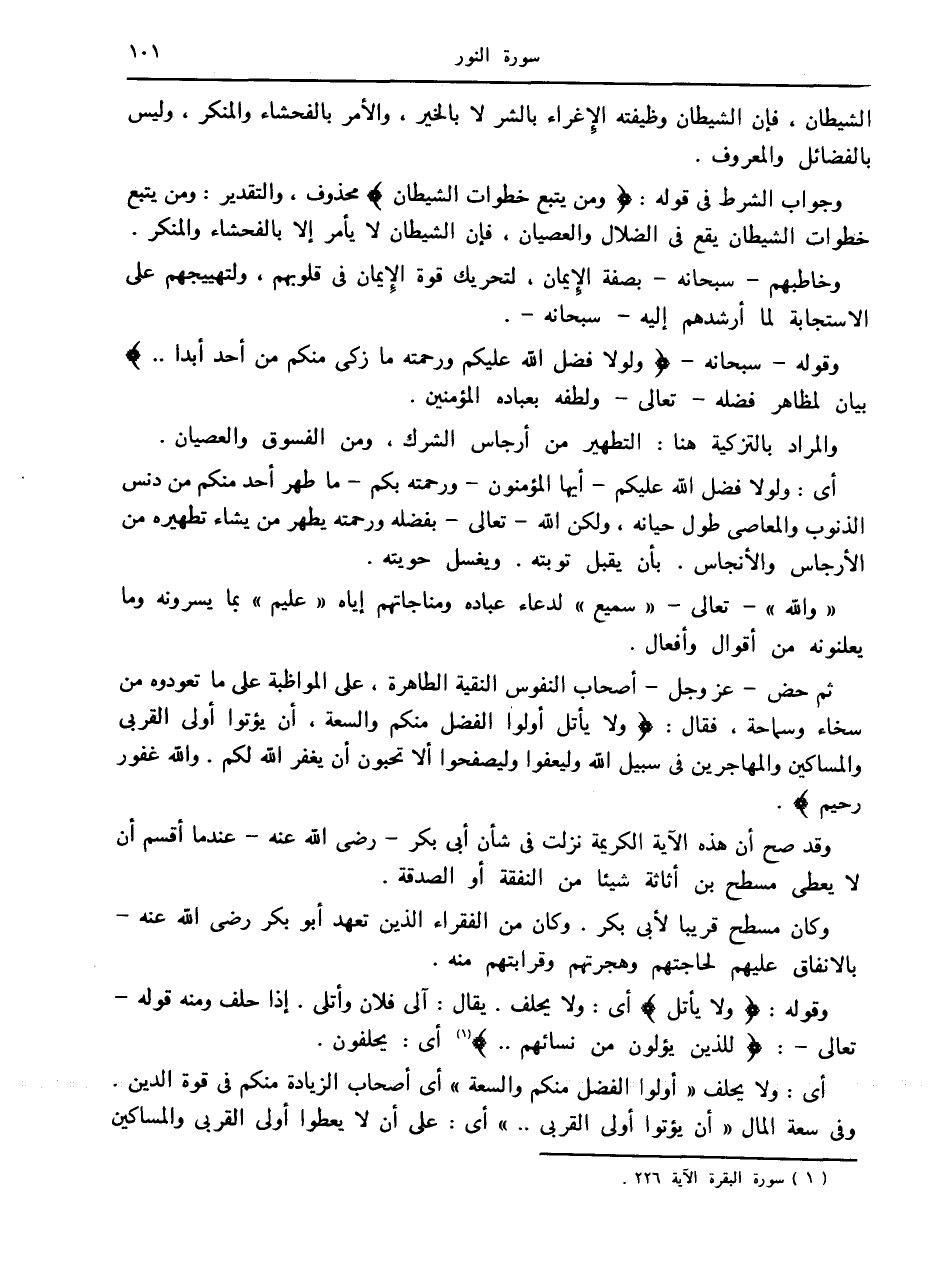 سورة النور ١٠١
الشيطان ، فإن الشيطان وظيفته الإغراء بالشر لا بالخير ، والأمر بالفحشاء والمنكر ، وليس
بالفضائل والمعروف .
وجواب الشرط فى قوله : ﴿ ومن يتبع خطوات الشيطان ﴾ محذوف ، والتقدير : ومن يتبع
خطوات الشيطان يقع فى الضلال والعصيان ، فإن الشيطان لا يأمر إلا بالفحشاء والمنكر .
وخاطبهم – سبحانه – بصفة الإيمان ، لتحريك قوة الإيمان فى قلوبهم ، ولتهييجهم على
الاستجابة لما أرشدهم إليه – سبحانه – .
وقوله – سبحانه – ﴿ ولولا فضل الله عليكم ورحمته ما زكى منكم من أحد أبدا .. ﴾
بيان لمظاهر فضله – تعالى – ولطفه بعباده المؤمنين .
والمراد بالتزكية هنا : التطهير من أرجاس الشرك ، ومن الفسوق والعصيان .
أى : ولولا فضل الله عليكم – أيها المؤمنون – ورحمته بكم – ما طهر أحد منكم من دنس
الذنوب والمعاصى طول حيانه ، ولكن الله – تعالى – بفضله ورحمته يطهر من يشاء تطهيره من
الأرجاس والأنجاس . بأن يقبل توبته . ويغسل حوبته .
« والله » – تعالى – « سميع » لدعاء عباده ومناجاتهم إياه « عليم » بما يسرونه وما
يعلنونه من أقوال وأفعال .
ثم حض – عز وجل – أصحاب النفوس النقية الطاهرة ، على المواظبة على ما تعودوه من
سخاء وسماحة ، فقال : ﴿ ولا يأتل أولوا الفضل منكم والسعة ، أن يؤتوا أولى القربى
والمساكين والمهاجرين فى سبيل الله وليعفوا وليصفحوا ألا تحبون أن يغفر الله لكم . والله غفور
رحيم ﴾ .
وقد صح أن هذه الآية الكريمة نزلت فى شأن أبى بكر – رضى الله عنه – عندما أقسم أن
لا يعطى مسطح بن أثاثة شيئا من النفقة أو الصدقة .
وكان مسطح قريبا لأبى بكر . وكان من الفقراء الذين تعهد أبو بكر رضى الله عنه –
بالانفاق عليهم لحاجتهم وهجرتهم وقرابتهم منه .
وقوله : ﴿ ولا يأتل ﴾ أى : ولا يحلف . يقال : آلى فلان وأتلى . إذا حلف ومنه قوله –
تعالى – : ﴿ للذين يؤلون من نسائهم .. ﴾(١) أى : يحلفون .
أى : ولا يحلف « أولوا الفضل منكم والسعة » أى أصحاب الزيادة منكم فى قوة الدين .
وفى سعة المال « أن يؤتوا أولى القربى .. » أى : على أن لا يعطوا أولى القربى والمساكين
( ١ ) سورة البقرة الآية ٢٢٦ .